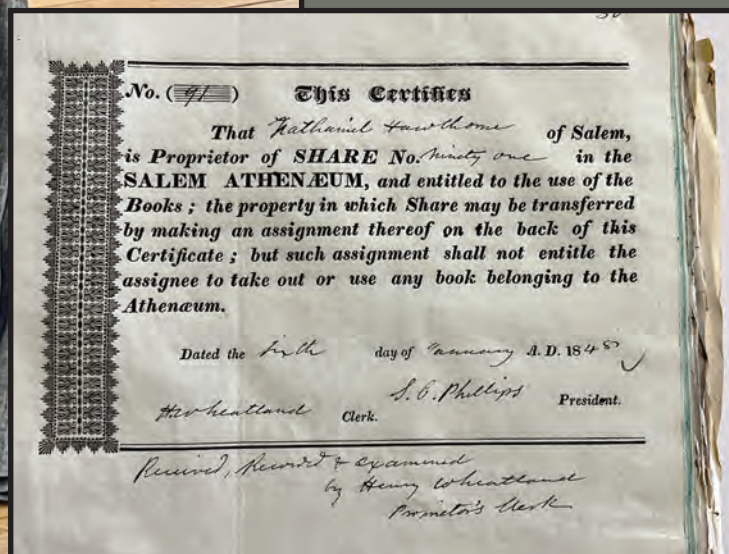 No. (91) This Certifies
That Nathaniel Hawthorne of Salem,
is Proprietor of SHARE No. Ninety one in the
SALEM ATHENÆUM, and entitled to the use of the
Books; the property in which Share may be transferred
by making an assignment thereof on the back of this
Certificate; but such assignment shall not entitle the
assignee to take out or use any book belonging to the
Athenæum.
Dated the Sixth day of January A. D. 184
H. Wheatland Clerk. S. C. Phillips President.
Received, Recorded & examined
by Henry Wheatland
Proprietor's Clerk